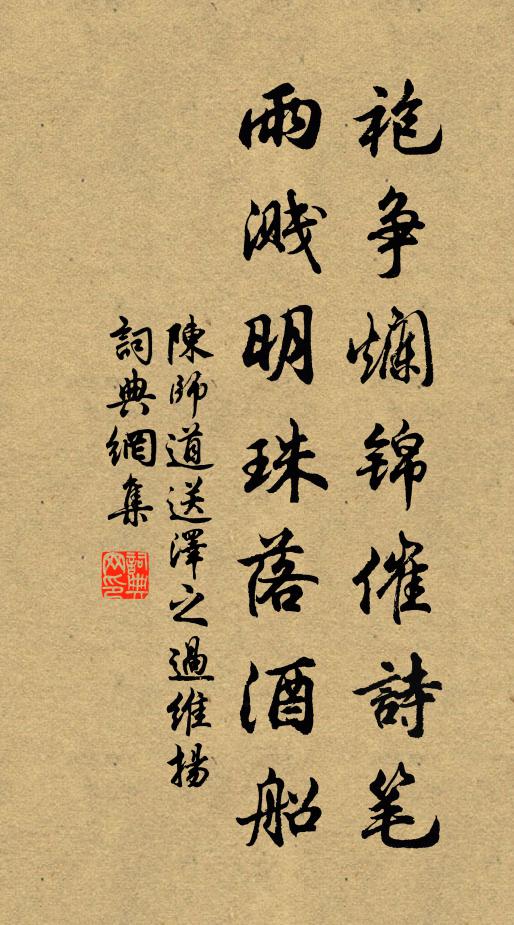 袍争爛锦催詩笔
雨溅明珠落酒船
陳師道送澤之過維揚
詞典網集
詞典网印